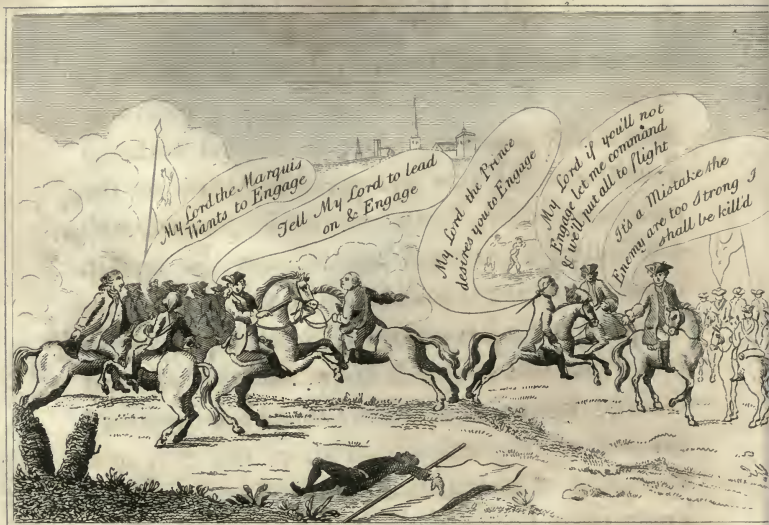 My Lord the Marquis
Wants to Engage
Tell My Lord to lead
on & Engage
My Lord the Prince
desires you to Engage
My Lord if you'll not
Engage let me command
& we'll put all to flight
It's a Mistake the
Enemy are too Strong I
shall be kill'd